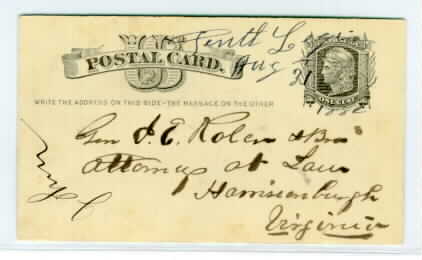 South
POSTAL CARD.
Aug
31
ONE CENT
1882
WRITE THE ADDRESS ON THIS SIDE - THE MESSAGE ON THE OTHER
Gen J. E. Roler & Bro
Attorneys at Law
Harrisonburgh
Virginia